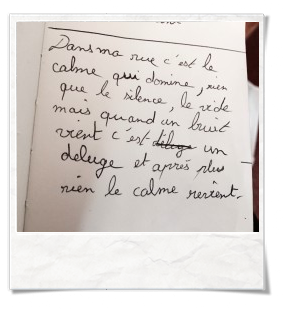 Dans ma rue c'est le
calme, qui domine, rien
que le silence, le vide
mais quand un bruit
vient c'est déluge un
deluge et après plus
rien le calme revient.